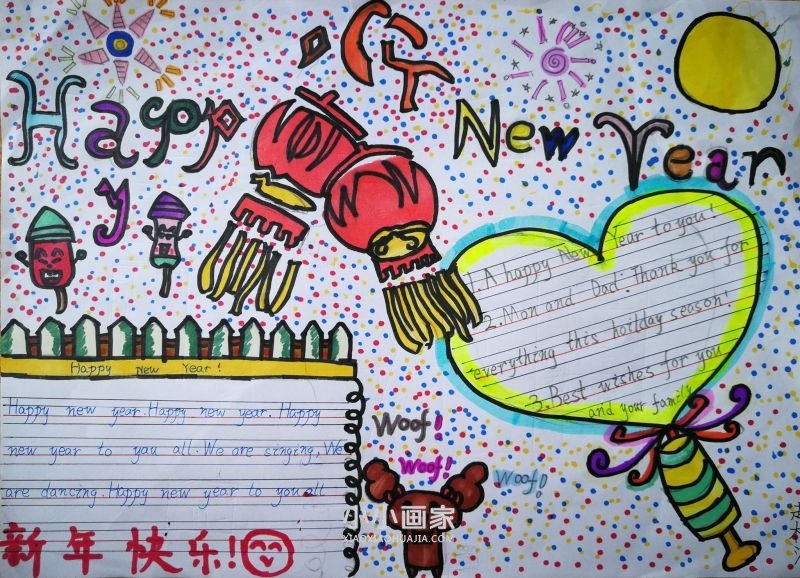 Happy
New Year
1. A happy New Year to you!
2. Mon and Dad: Thank you for
everything this hoilday season!
3. Best wishes for you
and your family
Happy New Year!
Happy new year. Happy new year. Happy
new year to you all. We are singing, We
are dancing. Happy new year to you all
Woof!
Woof!
Woof!
新年快乐!
小小画家
XIAOXIAOHUAJIA.COM